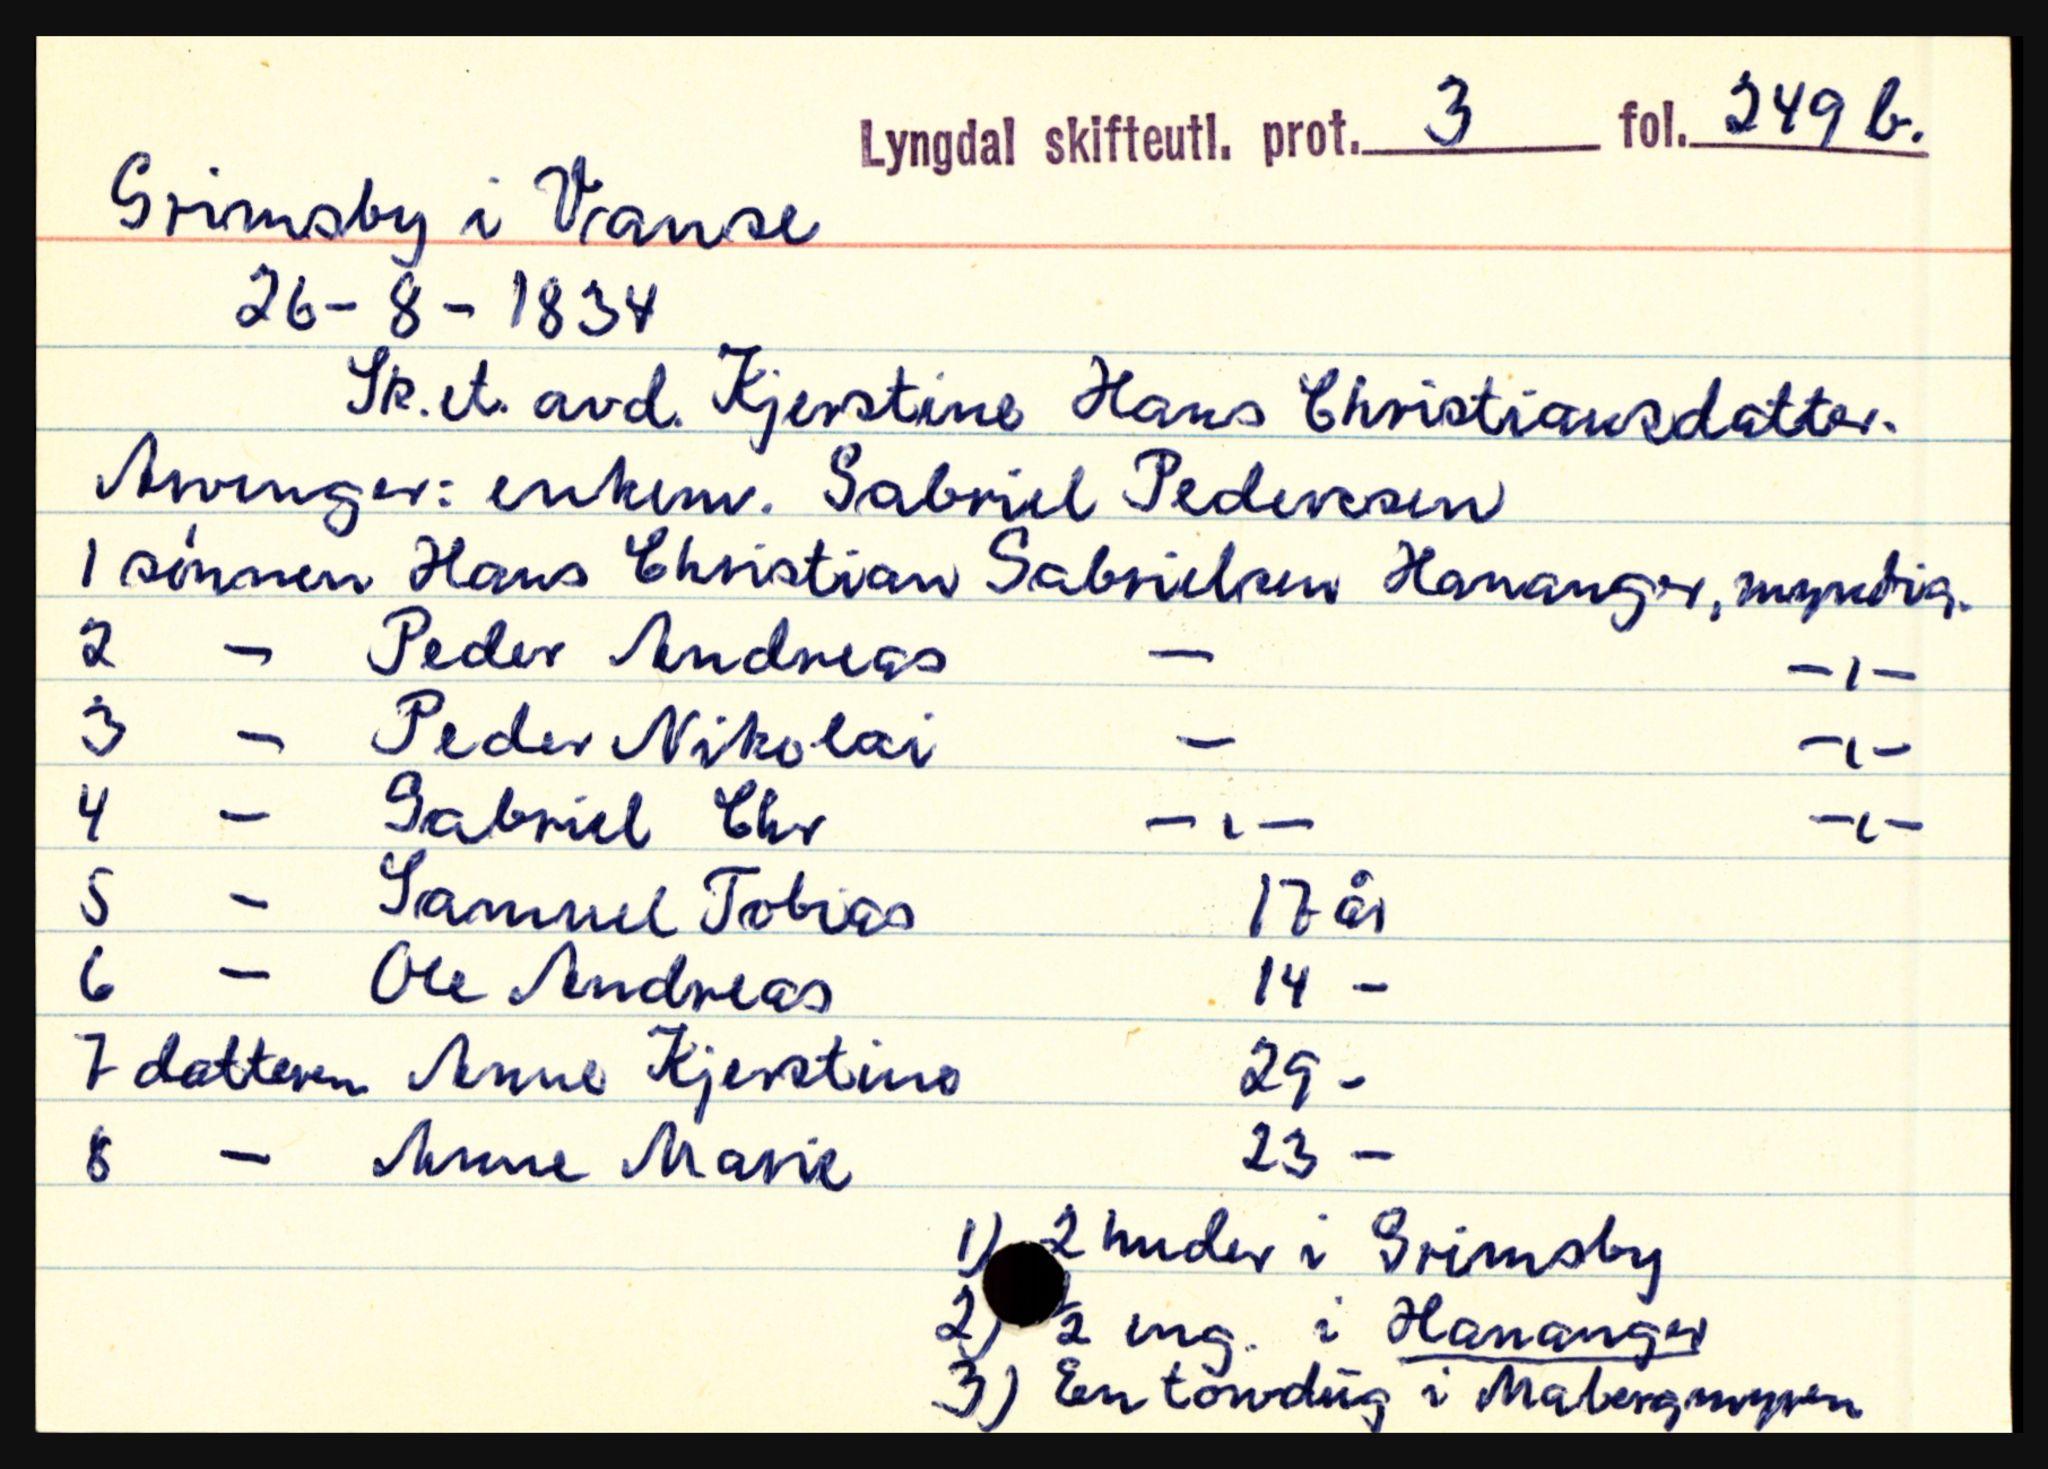 Lyngdal skifteutl. prot. 3 fol. 249 b.
Grimsby i Vanse
26 - 8 - 1834
Sk. et. avd. Kjerstine Hans Christiansdatter.
Arvinger: enkem. Gabriel Pedersen
1 sønnen Hans Christian Gabrielsen Hananger, myndig.
2 - Peder Andreas - -"-
3 - Peder Nikolai - -"-
4 - Gabriel Chr -"- -"-
5 - Samuel Tobias 17 år
6 - Ole Andreas 14 -
7 datteren Anne Kjerstine 29 -
8 - Anne Marie 23 -
1) 2 huder i Grimsby
2) ½ eng. i Hananger
3) En i